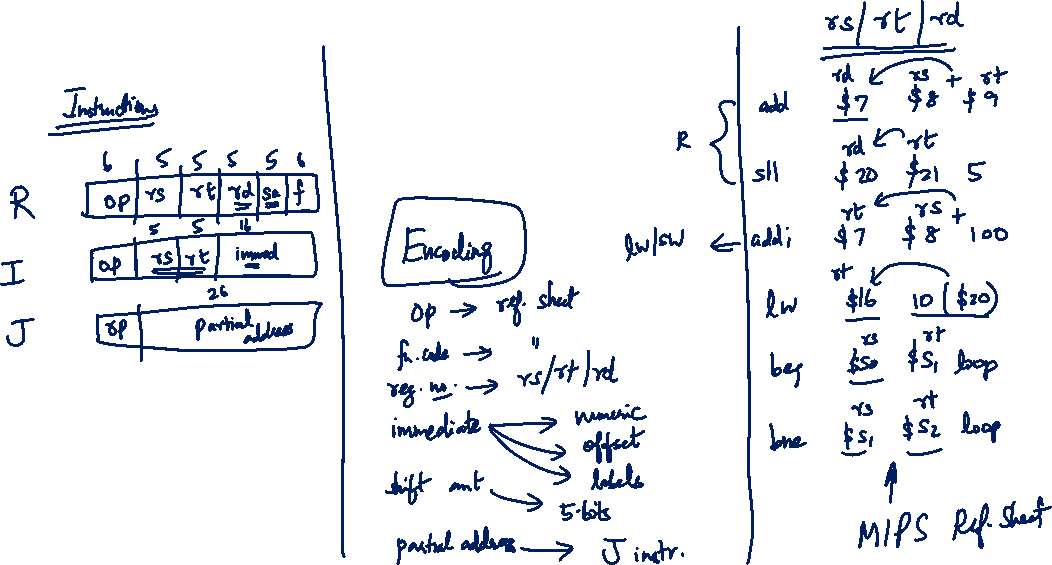 Instructions
6 5 5 5 5 6
R op rs rt rd sa f
5 5 16
I op rs rt immed
26
J op partial address
Encoding
op → ref. sheet
fn. code → "
reg. no. → rs/rt/rd
immediate → numeric
→ offset
→ labels
shift amt → 5-bits
partial address → J instr.
rs/rt/rd
rd ← rs + rt
R { add $7 $8 $9
rd ← rt
sll $20 $21 5
rt ← rs +
lw/sw ← addi $7 $8 100
rt
lw $16 10($20)
rs rt
beq $s0 $s1 loop
rs rt
bne $s1 $s2 loop
MIPS Ref. Sheet